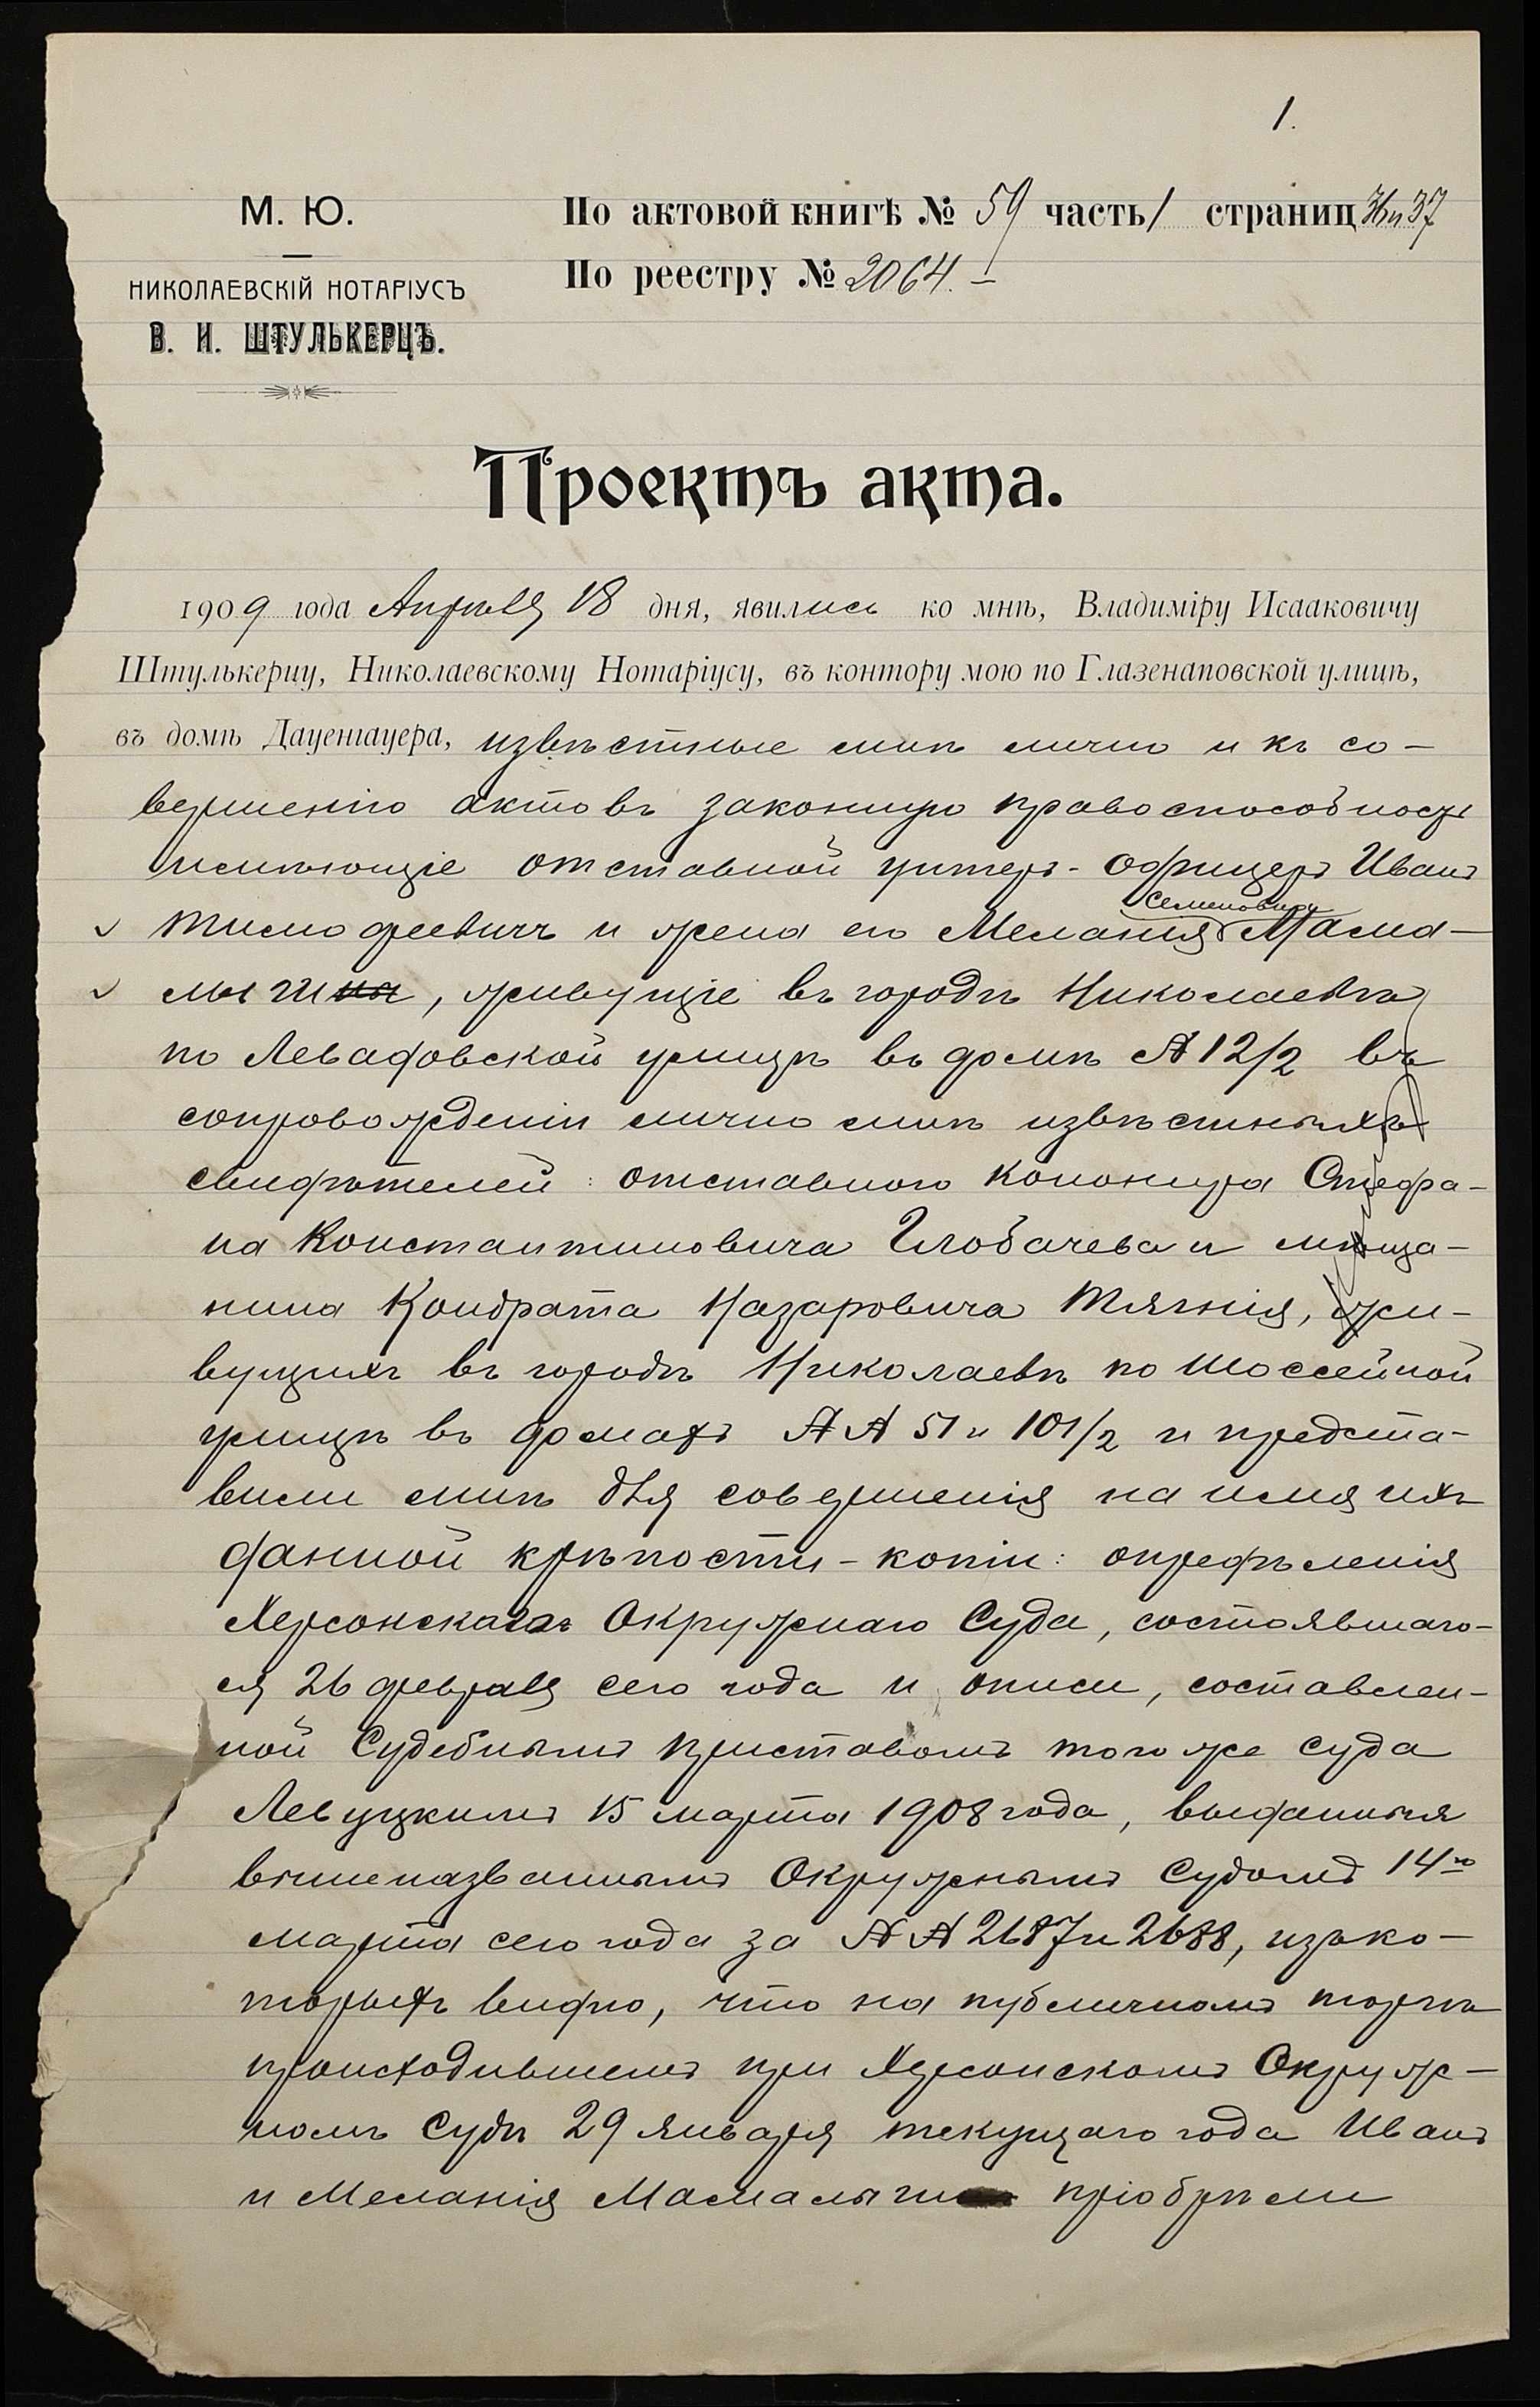 1.
М. Ю.
НИКОЛАЕВСКІЙ НОТАРІУСЪ
В. И. ШТУЛЬКЕРЦЪ.
По актовой книгѣ № 59 часть 1 страниц 36 и 37
По реестру № 2064. –
Проектъ акта.
1909 года Апрѣля 18 дня, явились ко мнѣ, Владиміру Исааковичу
Штулькерцу, Николаевскому Нотаріусу, въ контору мою по Глазенаповской улицѣ,
въ домѣ Дауенгауера, извѣстные мнѣ лично и къ со-
вершенію актовъ законную правоспособность
имѣющіе отставной унтеръ-офицеръ Иванъ
Семеновы
Тимофеевичъ и жена его Меланія Мама-
лыги, живущіе въ городѣ Николаевѣ
по Левадовской улицѣ въ домѣ № 12/2 въ
сопровожденіи лично мнѣ извѣстныхъ
свидѣтелей: отставного канонира Стефа-
на Константиновича Глобачева и мѣща-
нина Кондрата Назаровича Тягнія, жи-
вущихъ въ городѣ Николаевѣ по Шоссейной
улицѣ въ домахъ №№ 51 и 101/2 и предста-
вили мнѣ для совершенія на имя ихъ
данной крѣпости - копіи: опредѣленія
Херсонскаго Окружнаго Суда, состоявшаго-
ся 26 февраля сего года и описи, составлен-
ной Судебнымъ приставомъ того же суда
Левуцкимъ 15 марта 1908 года, выданныя
вышеназваннымъ Окружнымъ Судомъ 14го
марта сего года за №№ 2687 и 2688, изъ ко-
торыхъ видно, что на публичномъ торгѣ
происходившемъ при Херсонскомъ Окруж-
номъ Судѣ 29 января текущаго года Иванъ
и Меланія Мамалыги пріобрѣли